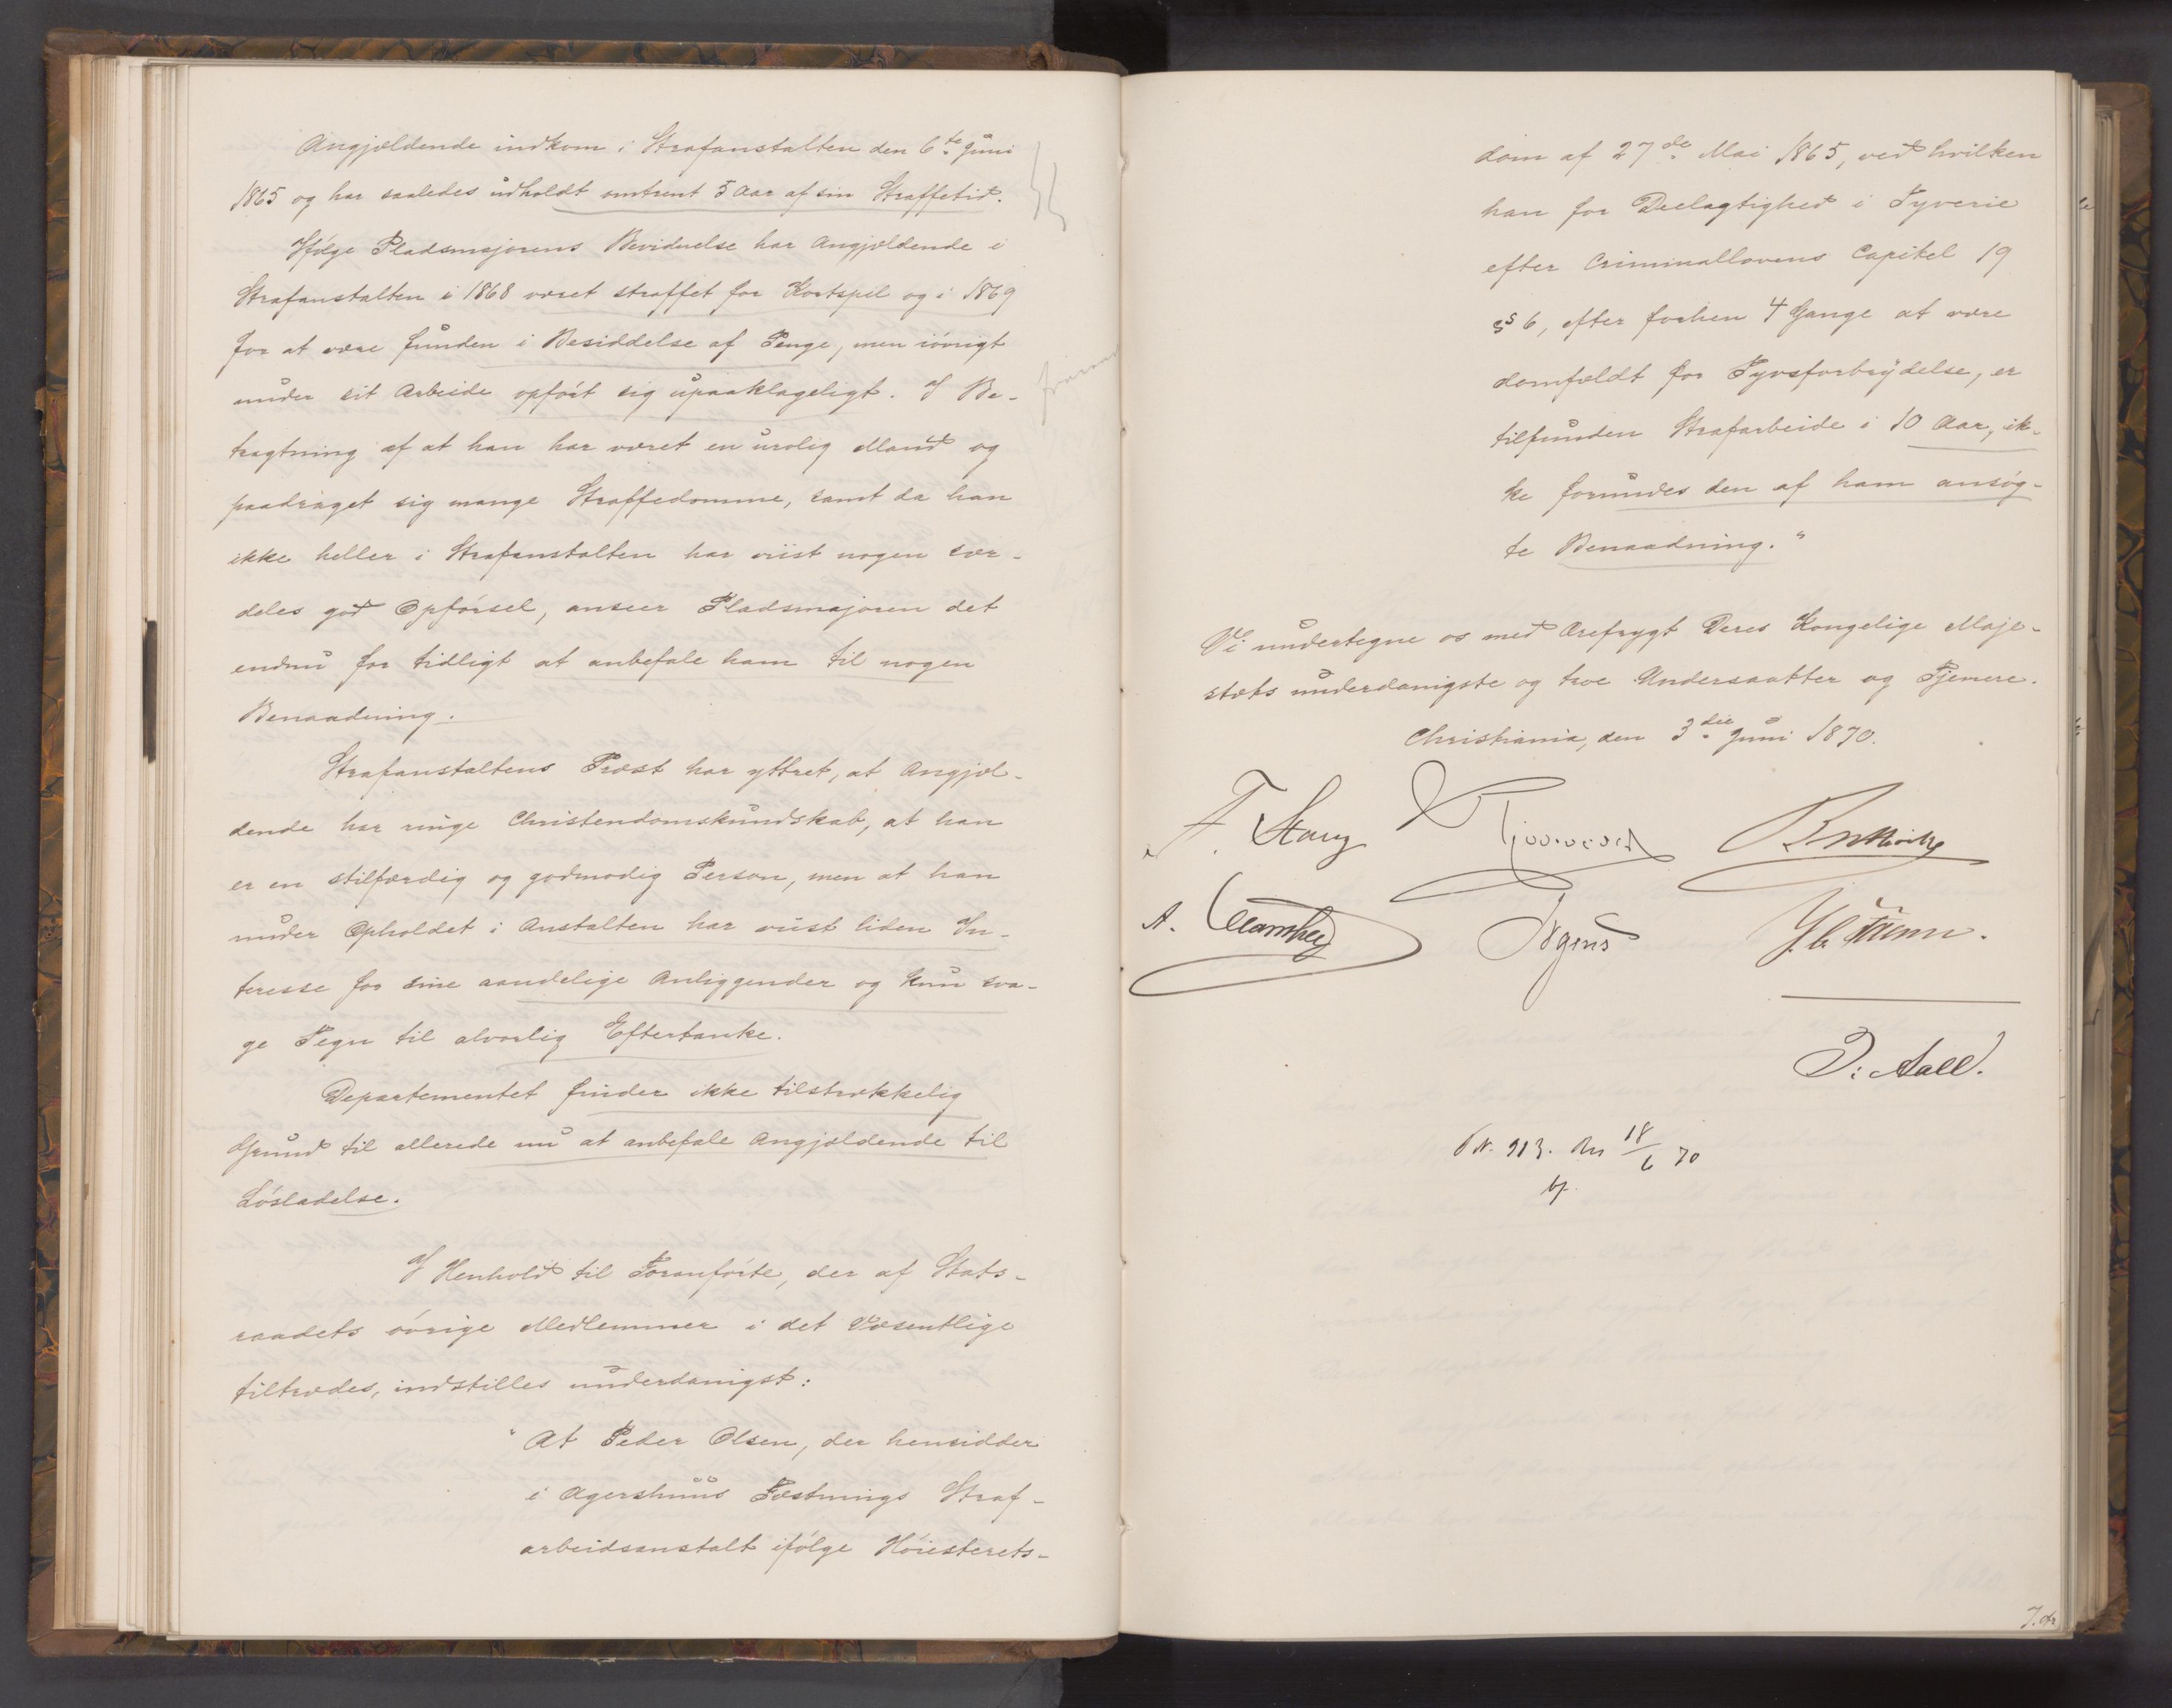 Angjældende indkom i Strafanstalten den 6te Juni
1865 og har saaledes udholdt omtrent 5 Aar af sin Straffetid.
Ifølge Pladsmajorens Bevidnelse har Angjældende i
Strafanstalten i 1868 været straffet for Kortspil og i 1869
for at være funden i Besiddelse af Penge, men iøvrigt
under sit Arbeide opført sig upaaklageligt. I Be-
tragtning af at han har været en urolig Mand og
paadraget sig mange Straffedomme, samt da han
ikke heller i Strafanstalten har viist nogen sær-
deles god Opførsel, anseer Pladsmajoren det
endnu for tidligt at anbefale ham til nogen
Benaadning.
Strafanstaltens Præst har yttret, at Angjæl-
dende har ringe Christendomskundskab, at han
er en stilfærdig og godmodig Person, men at han
under Opholdet i Anstalten har viist liden In-
teresse for sine aandelige Anliggender og kun sva-
ge Tegn til alvorlig Eftertanke.
Departementet finder ikke tilstrækkelig
Grund til allerede nu at anbefale Angjældende til
Løsladelse.
I Henhold til Foranførte, der af Stats-
raadets øvrige Medlemmer i det Væsentlige
tiltrædes, indstilles underdanigst:
"At Peder Olsen, der hensidder
i Agershuus Fæstnings Straf-
arbeidsanstalt ifølge Høiesterets-
dom af 27de Mai 1865, ved hvilken
han for Deelagtighed i Tyverie
efter Criminallovens Capitel 19
§ 6, efter forhen 4 Gange at være
domfældt for Tyvsforbrydelse, er
tilfunden Strafarbeide i 10 Aar, ik-
ke forundes den af ham ansøg-
te Benaadning."
Vi undertegne os med Ærefrygt Deres Kongelige Maje-
stæts underdanigste og troe Undersaatter og Tjenere.
Christiania, den 3die Juni 1870.
F. Stang
A.
Irgens
J. Aall.
No. 913. 18/6 70